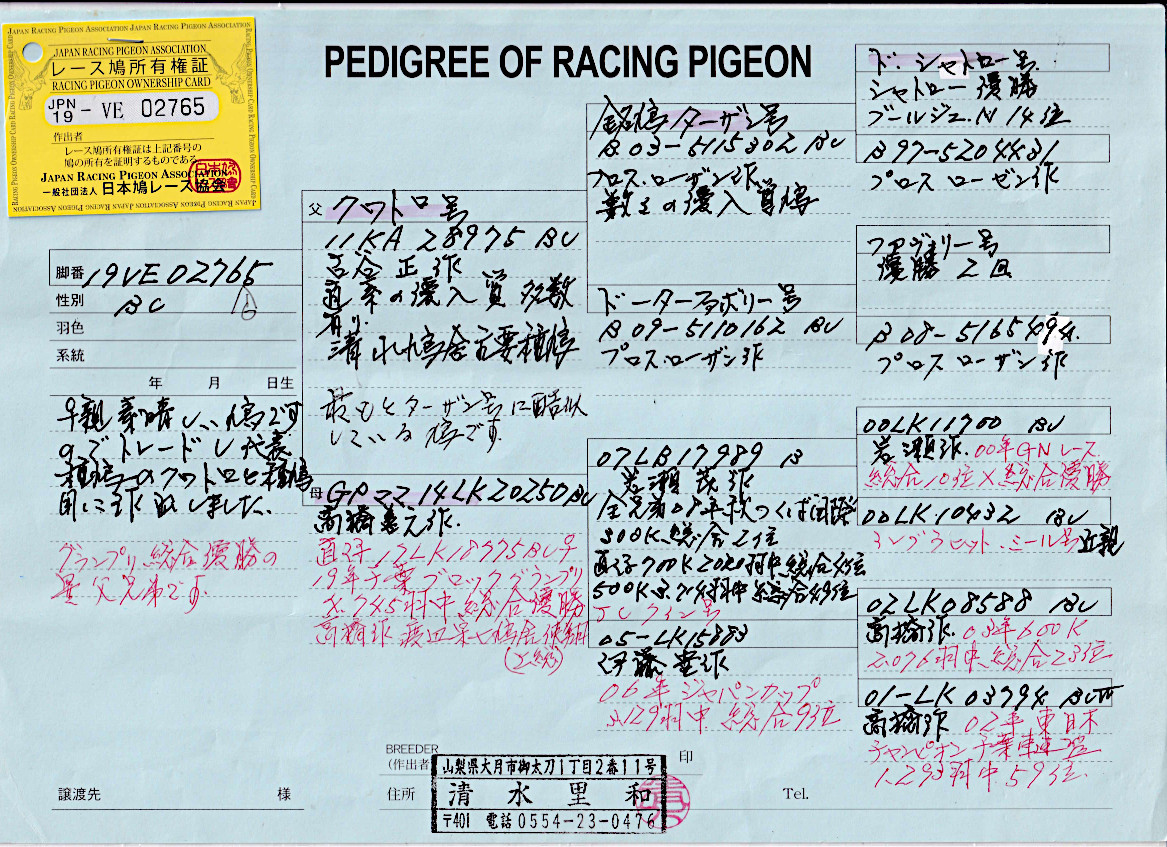 JAPAN RACING PIGEON ASSOCIATION JAPAN RACING PIGEON ASSOCIATION
JAPAN RACING PIGEON ASSOCIATION
レース鳩所有権証
RACING PIGEON OWNERSHIP CARD
JPN 19 - VE 02765
作出者
レース鳩所有権証は上記番号の
鳩の所有を証明するものである
JAPAN RACING PIGEON ASSOCIATION
一般社団法人 日本鳩レース協会
PEDIGREE OF RACING PIGEON
脚番 19VE02765
性別 BC
羽色
系統
年 月 日生
親素晴しい鳩です
のでトレードし代表
種鳩のクワトロと種鳩
用に作致しました。
グランプリ総合優勝の
異父兄弟です。
父 クワトロ号
11KA28975 BC
古谷 正 作
直系の優入賞多数
有り.
清水鳩舎主要種鳩
最もターザン号に酷似
している鳩です.
母 GPママ 14LK20250 BC
高橋 作.
直子 17LK18975 BC ♀
19年千葉ブロックグランプリ
745羽中総合優勝
銘鳩ターザン号
B03-6115302 BC
プロス.ローザン作
数々の優入賞鳩
ドーター 号
B09-5110162 BC
プロス.ローザン作
07LB17989 B
岩瀬 茂 作
全兄弟 08年秋つくば国際
300K総合2位
直子700K 2020羽中総合45位
500K 総合49位
JCクイン号
05-LK15883
伊藤 作
06年ジャパンカップ
3.129羽中 総合93位
ド.シャトロー号.
シャトロー優勝
ブールジェ.N 14位
B97-5204431
プロス ローゼン作
号
優勝 2回
B08-5165494.
プロス ローザン作
00LK11700 BC
岩瀬作. 00年GNレース
総合10位×総合優勝
00LK10432 BC
ミール号近親
02LK08588 BC
高橋作. 03年600K
2.076羽中総合23位
01-LK03794 BCW
高橋作 02年東日本
チャンピオン千葉東連盟
1.293羽中59位.
BREEDER
(作出者)
住所
山梨県大月市御太刀1丁目2番11号
清水里和
〒401 電話0554-23-0476
印
Tel.
譲渡先 様